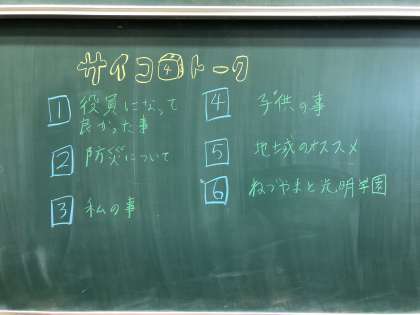 サイコロ4トーク
1 役員になって
良かった事
2 防災について
3 私の事
4 子供の事
5 地域のオススメ
6 ねづやまと光明学園